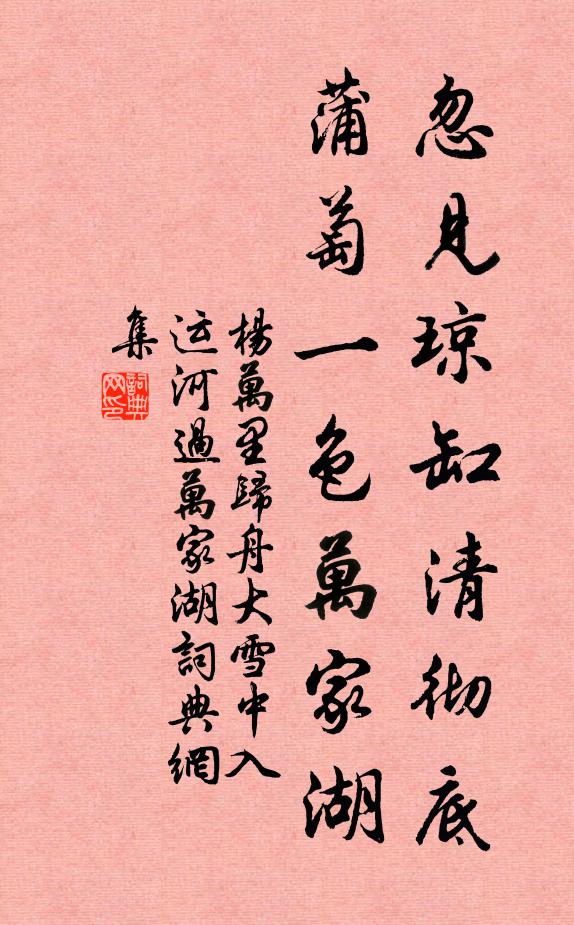 忽見琼缸清彻底
蒲萄一色萬家湖
楊萬里歸舟大雪中入
运河過萬家湖詞典網
集
詞典
网印